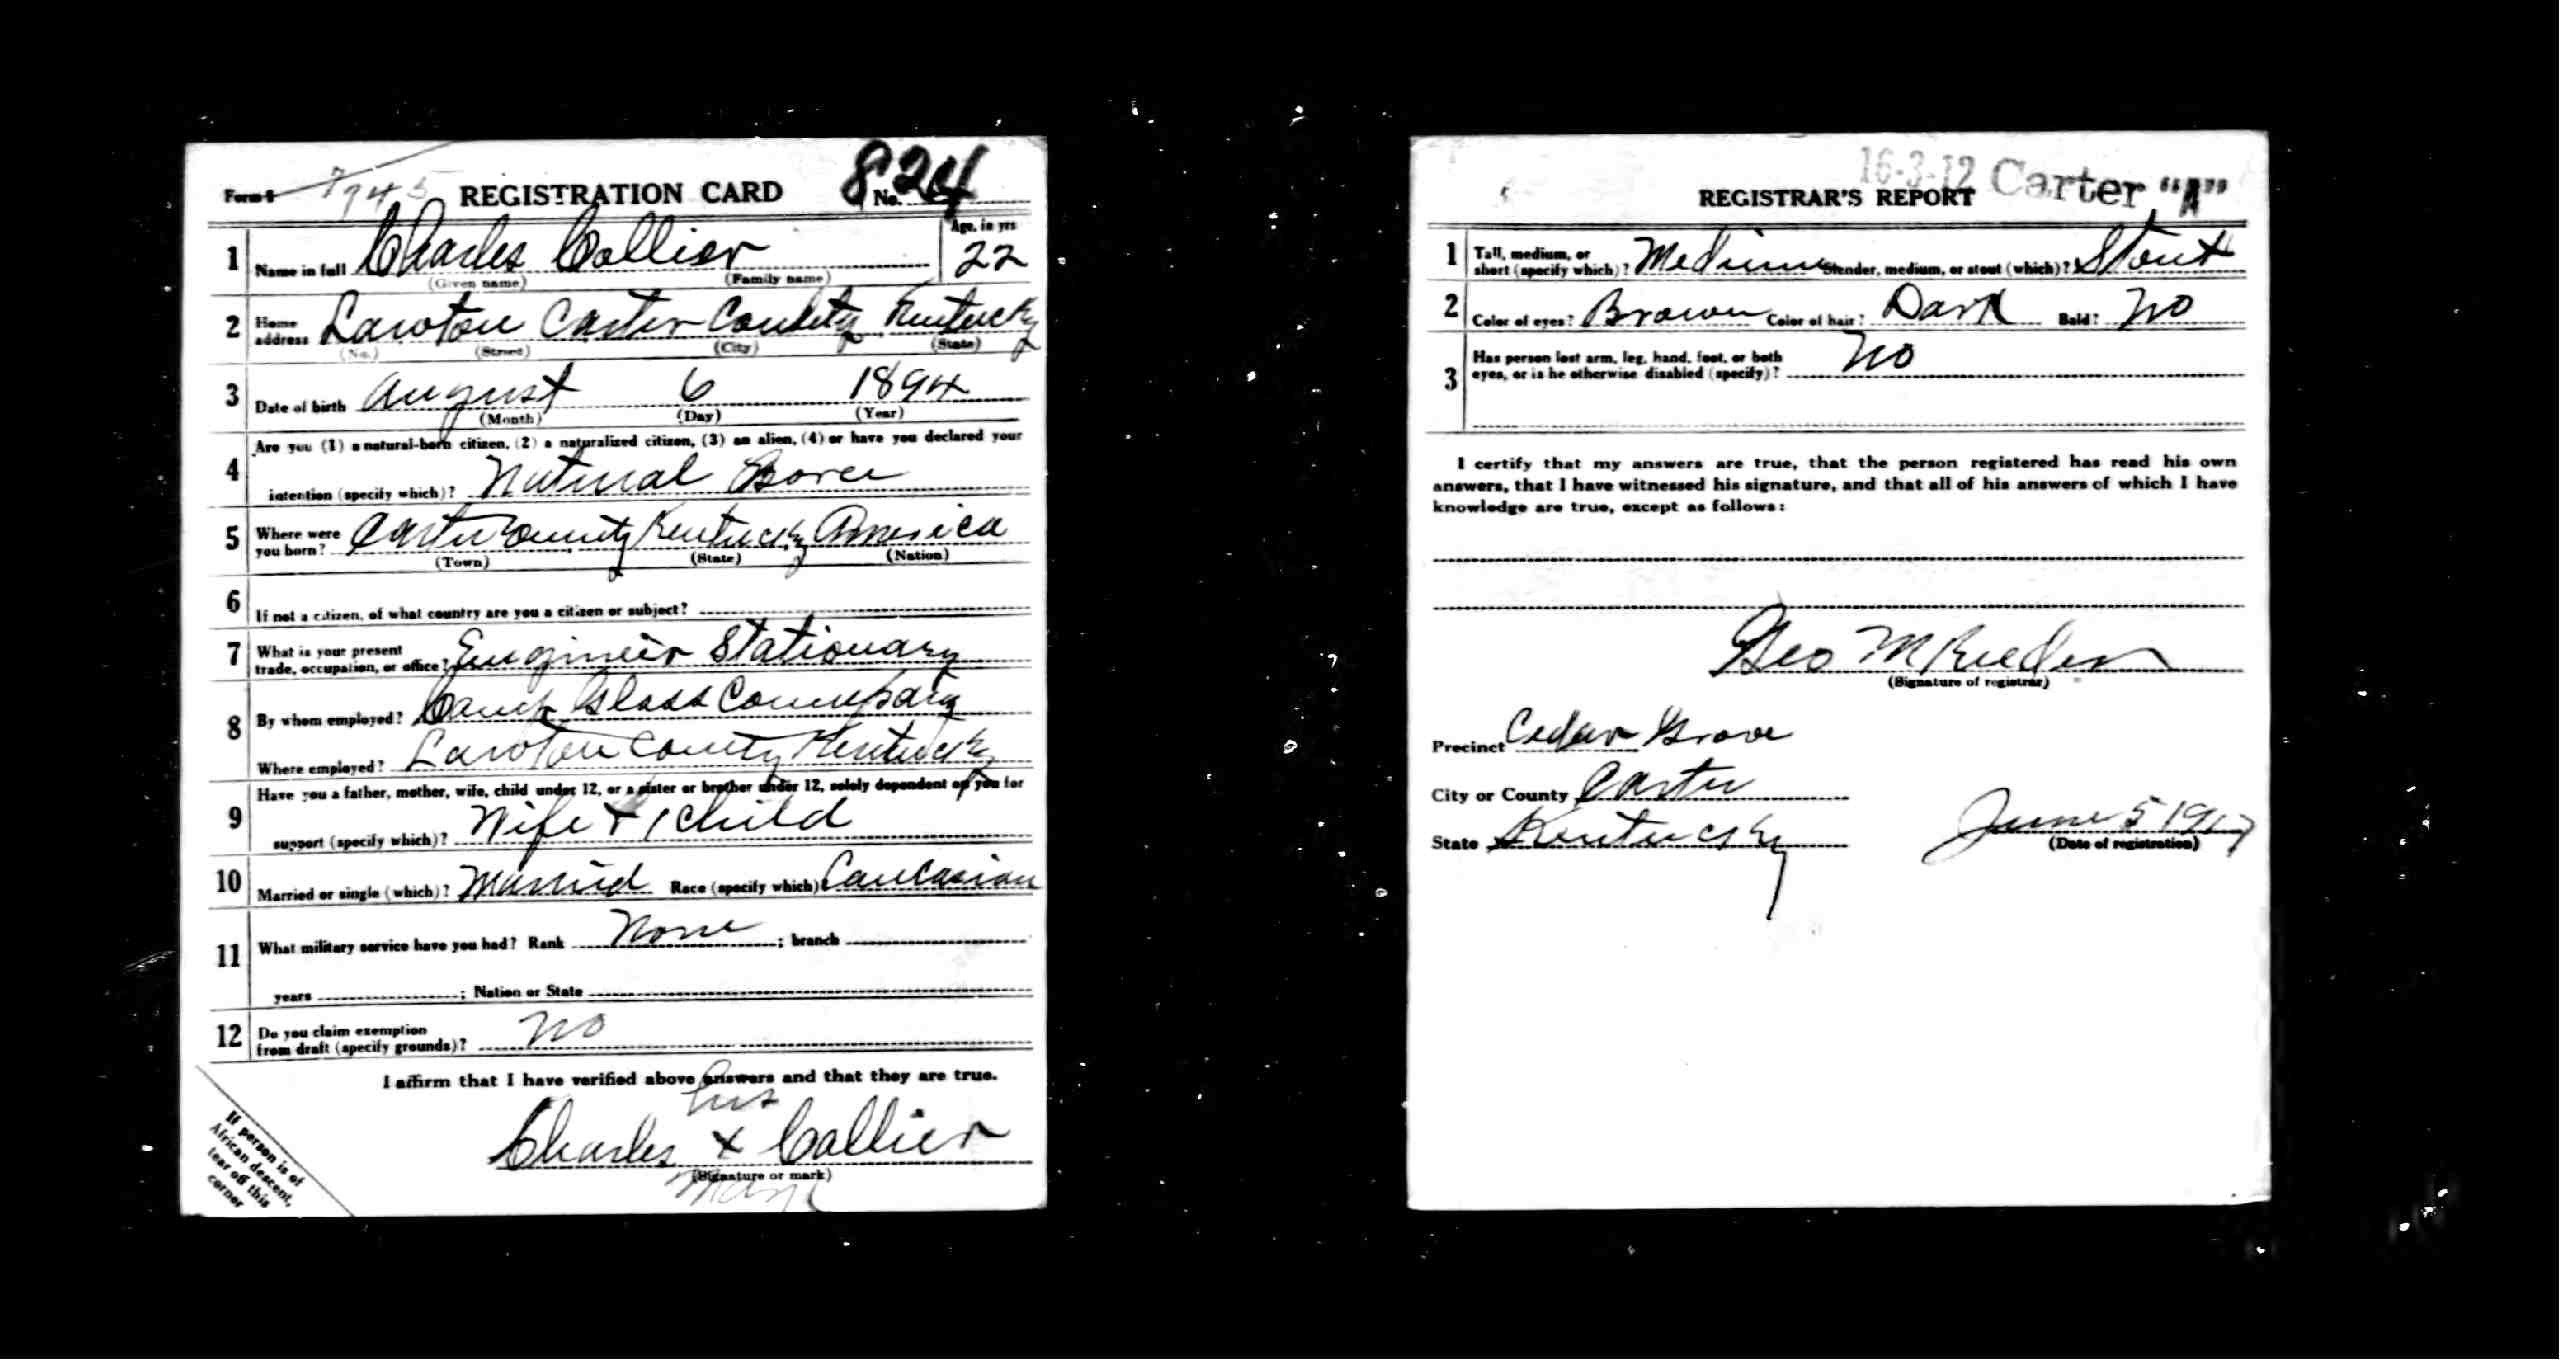 Form 1 7945 REGISTRATION CARD No. 824
1 Name in full Charles Collier Age, in yrs 22
(Given name) (Family name)
2 Home address Lawton Carter County Kentucky
(No.) (Street) (City) (State)
3 Date of birth August 6 1894
(Month) (Day) (Year)
Are you (1) a natural-born citizen, (2) a naturalized citizen, (3) an alien, (4) or have you declared your
4 intention (specify which)? Natural Born
5 Where were you born? Carter County Kentucky America
(Town) (State) (Nation)
6 If not a citizen, of what country are you a citizen or subject?
7 What is your present
trade, occupation, or office? Engineer Stationary
8 By whom employed? Glass Company
Where employed? Lawton County Kentucky
Have you a father, mother, wife, child under 12, or a sister or brother under 12, solely dependent on you for
9 support (specify which)? Wife + 1 Child
10 Married or single (which)? Married Race (specify which)? Caucasian
11 What military service have you had? Rank None ; branch
years ; Nation or State
12 Do you claim exemption
from draft (specify grounds)? No
I affirm that I have verified above answers and that they are true.
his
Charles X Collier
(Signature or mark)
Mark
If person is of
African descent,
tear off this
corner
16-3-12 Carter "A"
REGISTRAR'S REPORT
1 Tall, medium, or
short (specify which)? Medium Slender, medium, or stout (which)? Stout
2 Color of eyes? Brown Color of hair? Dark Bald? No
3 Has person lost arm, leg, hand, foot, or both
eyes, or is he otherwise disabled (specify)? No
I certify that my answers are true, that the person registered has read his own
answers, that I have witnessed his signature, and that all of his answers of which I have
knowledge are true, except as follows:
Geo M
(Signature of registrar)
Precinct Cedar Grove
City or County Carter
State Kentucky June 5 1917
(Date of registration)